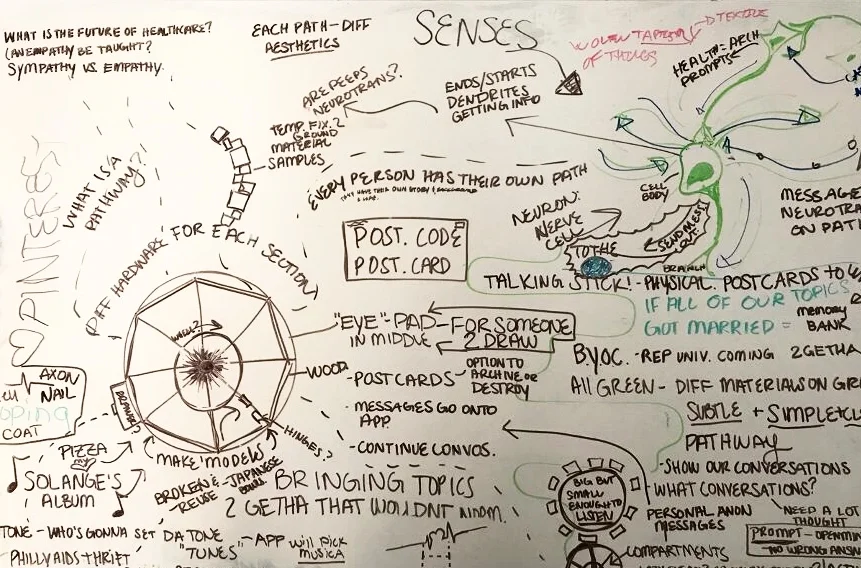 WHAT IS THE FUTURE OF HEALTHCARE?
CAN EMPATHY BE TAUGHT?
SYMPATHY VS. EMPATHY.
EACH PATH - DIFF
AESTHETICS
SENSES
WOVEN TAPESTRY
OF THINGS
HEALTH + ARCH
PROMPTS
ARE PEEPS
NEUROTRANS?
ENDS/STARTS
DENDRITES
GETTING INFO
TEMP. FIX. 2
GROUND
MATERIAL
SAMPLES
PINTEREST
WHAT IS A
PATHWAY?!
EVERY PERSON HAS THEIR OWN PATH
THEY HAVE THEIR OWN STORY &
CELL
BODY
NEURON:
NERVE
CELL
SEND MESS.
OUT
TO THE
BRANCH
MESSAGE
NEUROTRA
ON PATH
DIFF HARDWARE FOR EACH SECTION
POST. CODE
POST. CARD
TALKING STICK! - PHYSICAL. POSTCARDS to
IF ALL OF OUR TOPICS
GOT MARRIED =
memory
BANK
"EYE"-PAD - FOR SOMEONE
IN MIDDLE
2 DRAW
WOOD
- POSTCARDS
OPTION TO
ARCHIVE OR
DESTROY
- MESSAGES GO ONTO
APP.
- CONTINUE CONVOS.
B.Y.O.C. - REP UNIV. COMING 2GETHA
All GREEN - DIFF MATERIALS ON GR
SUBTLE + SIMPLE
PATHWAY
- SHOW OUR CONVERSATIONS
WHAT CONVERSATIONS?
NEED A LOT
THOUGHT
PERSONAL ANON
MESSAGES
PROMPT - OPEN
- NO WRONG ANSW
COMPARTMENTS
WHEEL?
DRAWER?
HINGES?
AXON
NAIL
COAT
PIZZA
SOLANGE'S
ALBUM
MAKE MODELS
BROKEN & - JAPANESE
REUSE
BRINGING TOPICS
2 GETHA THAT WOULDNT NORM.
BIG BUT
SMALL
ENOUGH TO
LISTEN
TONE - WHO'S GONNA SET DA TONE
"TUNES" - APP will PICK
MUSICA
PHILLY AIDS THRIFT